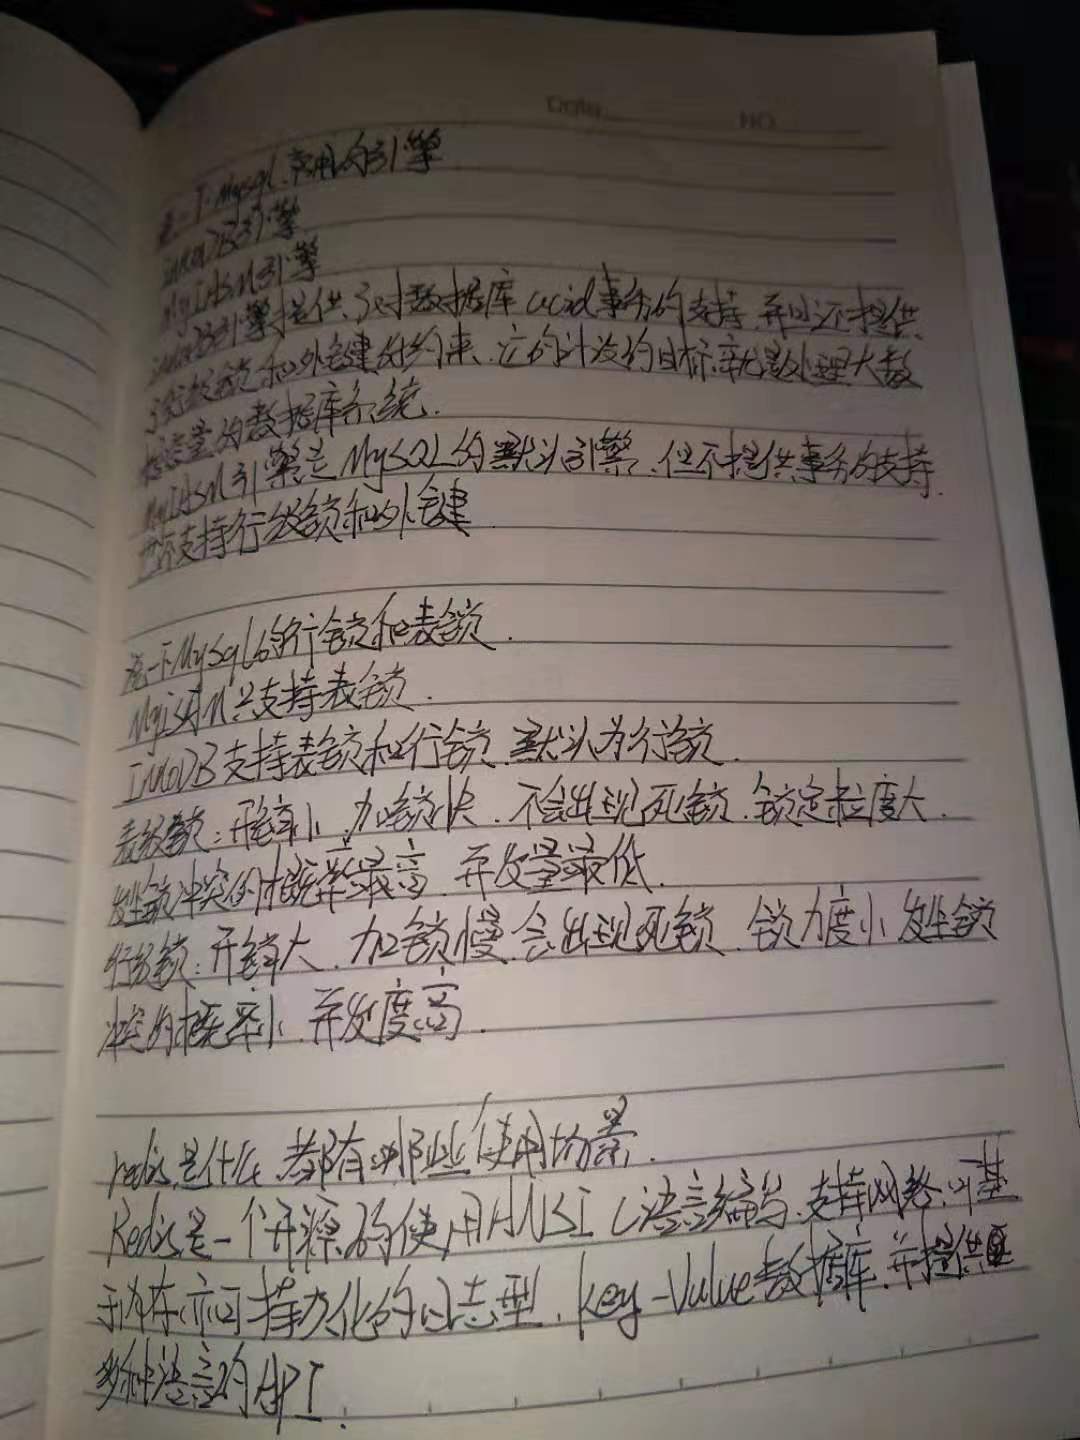 Date NO
说一下Mysql常用的引擎
innoDB引擎
MyIASM引擎
innoDB引擎提供了对数据库acid事务的支持.并且还提供
了行级锁和外键的约束.它的设计的目标就是处理大数
据容量的数据库系统.
MyIASM引擎是MySQL的默认引擎.但不提供事务的支持.
也不支持行级锁和外键
说一下MySql的行锁和表锁.
MyisAM只支持表锁.
InnoDB支持表锁和行锁.默认为行锁.
表级锁:开销小.加锁快.不会出现死锁.锁定粒度大.
发生锁冲突的概率最高.并发量最低.
行级锁:开销大.加锁慢.会出现死锁.锁力度小.发生锁
冲突的概率小.并发度高.
redis是什么.都有哪些使用场景.
Redis是一个开源的使用ANSI C语言编写.支持网络.可基
于内存亦可持久化的日志型.key-Value数据库.并提供
多种语言的API.